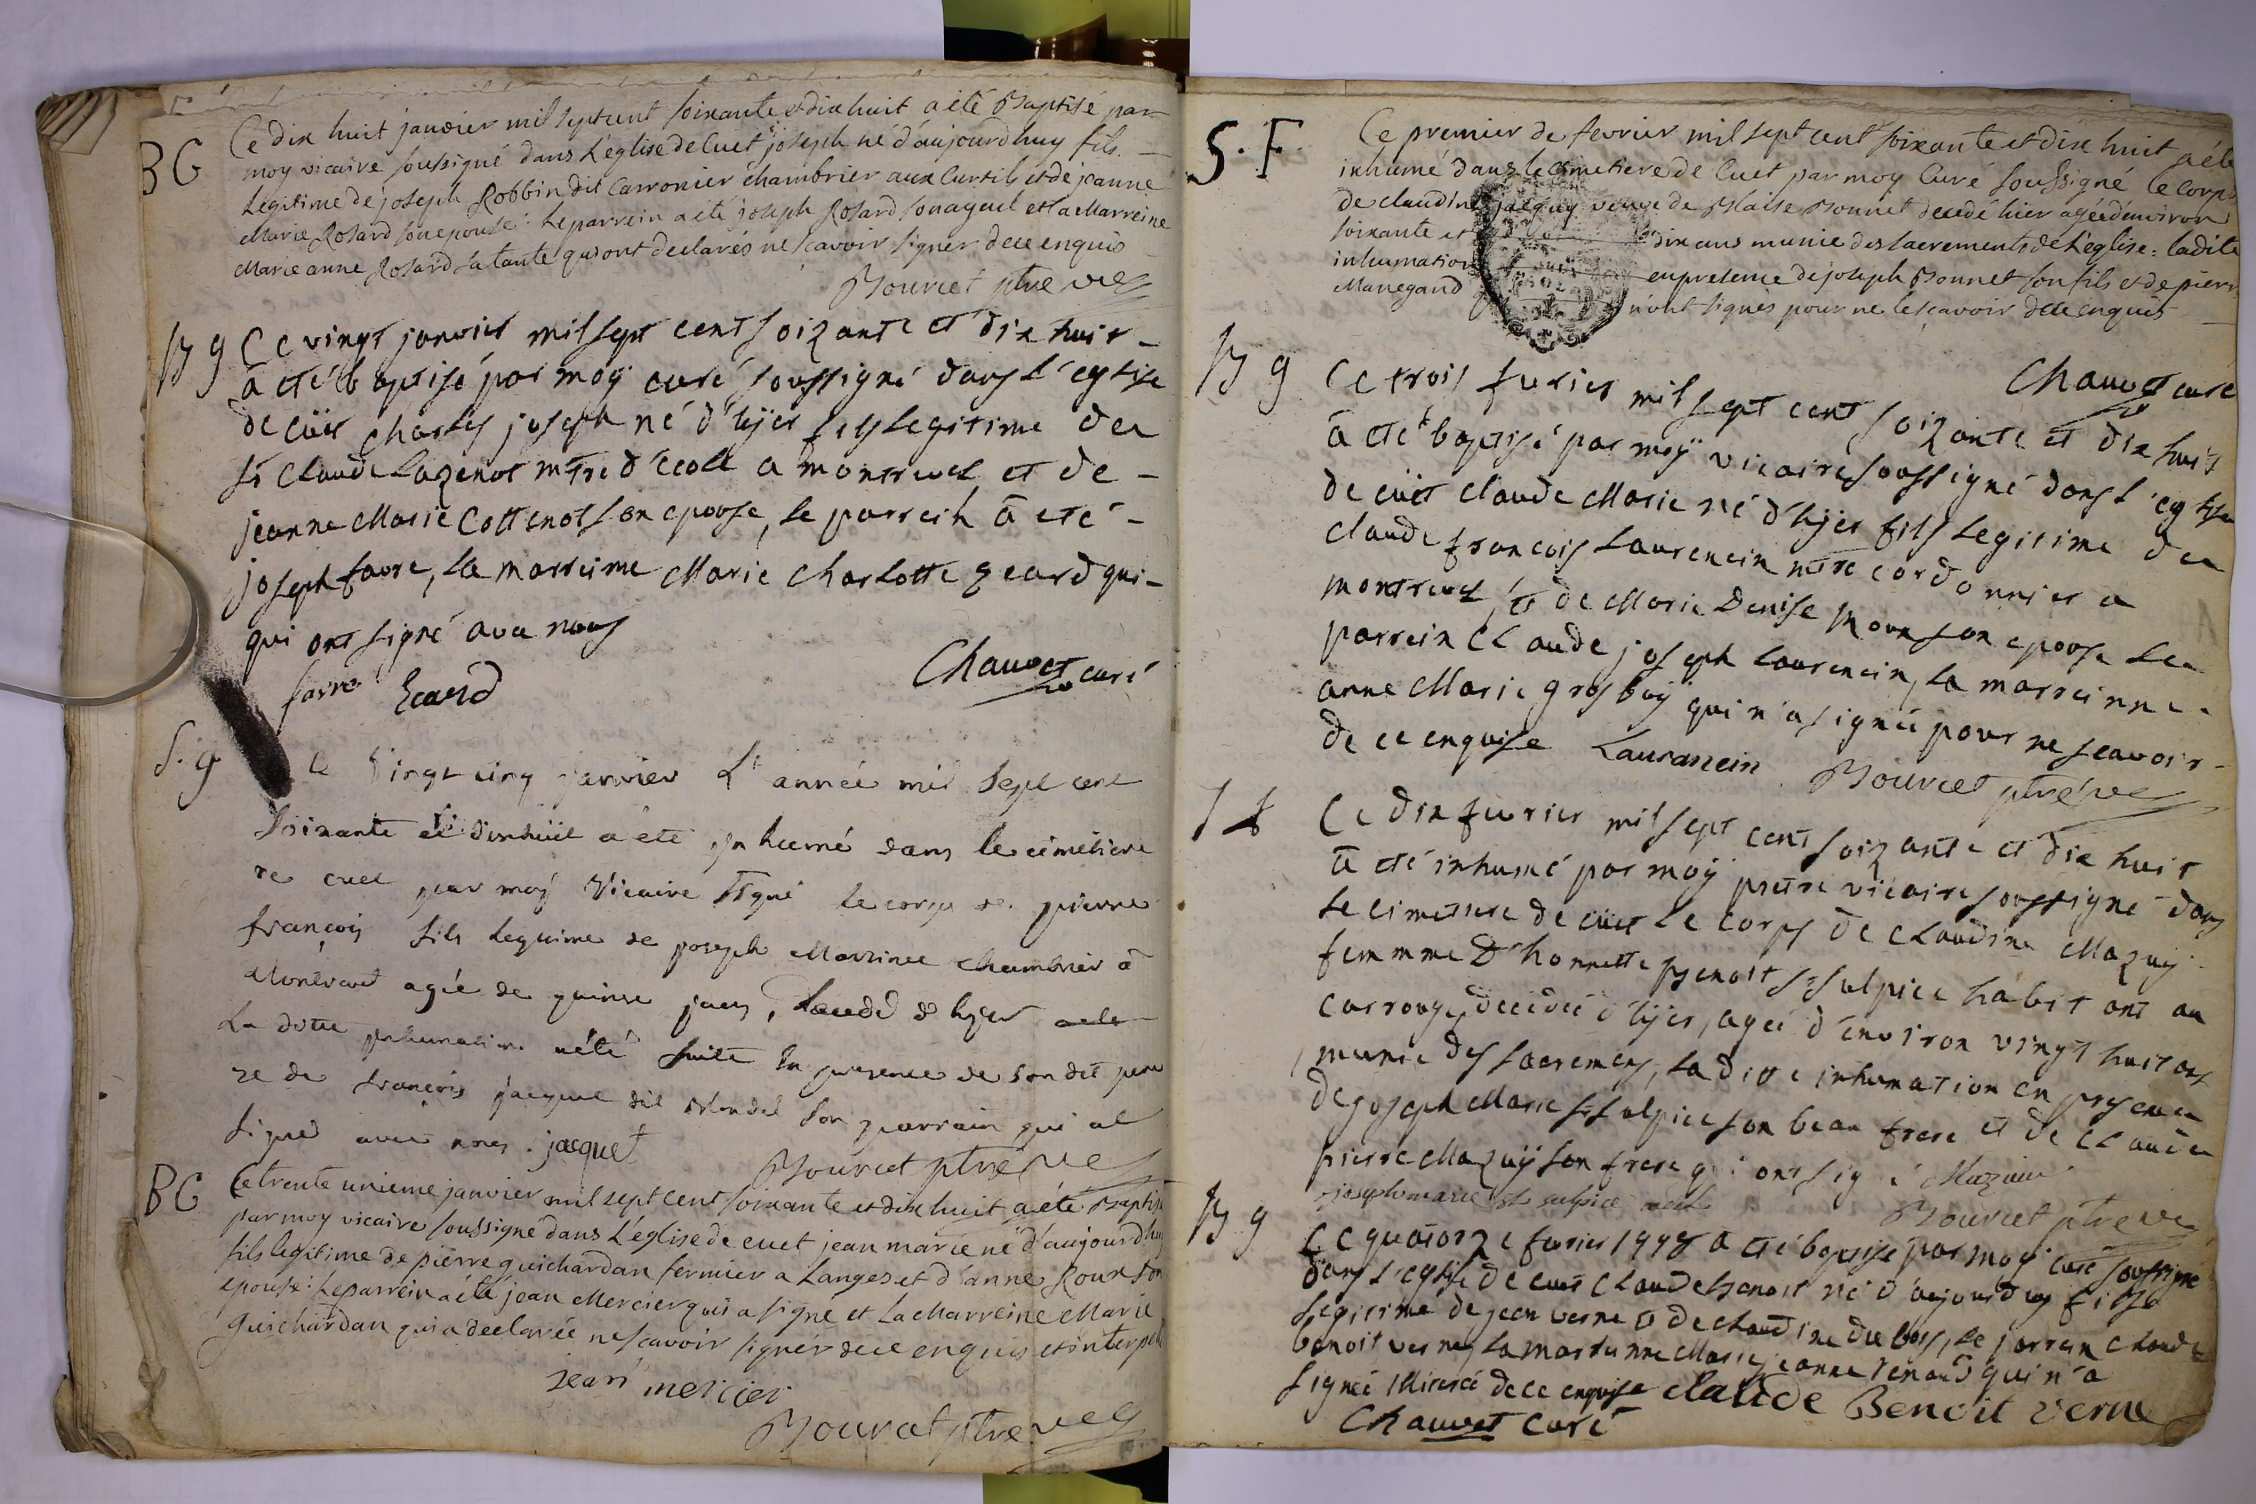 BG
Ce dix huit janvier mil sept cent soixante et dix huit a été Baptisé par
moy vicaire soussigné dans L'église de Cuet joseph né d'aujourdhuy fils
Legitime de joseph Robbin dit Carronier chambrier aux Curtils et de jeanne
Marie Rosard son epouse : Le parrein a été joseph Rosard son ayeul et La Marreine
Marie anne Rosard sa tante qui ont declarés ne scavoir signer de ce enquis
Bourcet ptre vic
B g
Ce vingt janvier mil sept cent soizante et dix huit
â eté baptisé par moÿ curé soussigné dans L'eglise
de cüet charles joseph né d'hÿer fils Legitime de
Sr Claude Lazenot mtre d'école a montrevel et de
jeanne Marie Cottenot son epouse, Le parrein â eté
joseph favre, La marreinne Marie Charlotte Ecard qui
qui ont signé avec nous
favre Ecard Chauvet curé
S. g
Le Vingt cinq janvier L'année mil Sept cent
Soixante et dixhuit a été Inhumé dans le cimetiere
de cuet par moÿ Vicaire signé Le corps de pierre
françois fils Legitime de joseph chambrier à
Montrevel agé de quinse jours, decedé d'hyer
La ditte Inhumation a été faite En presence de Son dit pere
et de françois jacquet dit Son parrain qui a
Signé avec nous . jacquet
Bourcet ptre vic
BG
Ce trente unieme janvier mil sept cent soixante et dix huit a été Baptisé
par moy vicaire soussigné dans L'église de cuet jean marie né d'aujourd'huy
fils legitime de pierre guichardan fermier a Langes et d'anne Roux son
epouse : Le parrein a été jean Mercier qui a signé et La Marreine Marie
guichardan qui a declarée ne scavoir signér de ce enquis et interpellé
jean mercier
Bourcet ptre vic
S. F.
Ce premier de fevrier mil sept cent soixante et dix huit a été
inhumé dans le Cimetiere de Cuet par moy Curé soussigné le corps
de claudine jacquy veuve de Blaise Bonnet decedé hier agée d'environ
soixante et dix ans munie des sacrements de L'église : ladite
inhumation en presence de joseph Bonnet son fils et de pierre
Manegand n'ont signés pour ne le scavoir de ce enquis
Chauvet curé
B g
Ce trois fevrier mil sept cent soizante et dix huit
â eté baptisé par moÿ vicaire soussigné dans L'eglise
de cüet claude Marie né d'hÿer fils Legitime de
claude françois Laurencin mtre cordonnier a
montrevel, et de Marie Denise son epouse Le
parrein Claude joseph Laurencin, La marreinne
anne Marie grosbuÿ qui n'a signée pour ne scavoir
de ce enquise Laurancin Bourcet ptre vic
S f
Ce dix fevrier mil sept cent soizante et dix huit
â eté inhumé par moÿ pretre vicaire soussigné dans
Le cimetiere de cüet Le corps de claudine Mazuÿ
femmme D'honnette Benoit St sulpice habitant au
carrouge, decedée d'hÿer, agée d'environ vingt huit ans
munie des sacremens, La ditte inhumation en presence
de joseph Marie St sulpice son beau frere et de Claude
pierre Mazuÿ son frere qui ont signé Mazuir
joseph marie St sulpice
Bourcet ptre vic
B g
Ce quatorze fevrier 1778 a eté baptisé par moÿ curé soussigné
dans L'eglise de cuet Claude Benoit né d'aujourduy fils
Legitime de jean verne et de claudine dubois, Le parrein claude
benoit verne, La marreinne Marie jeanne renaud qui n'a
signée de ce enquise claude Benoit verne
Chauvet Curé